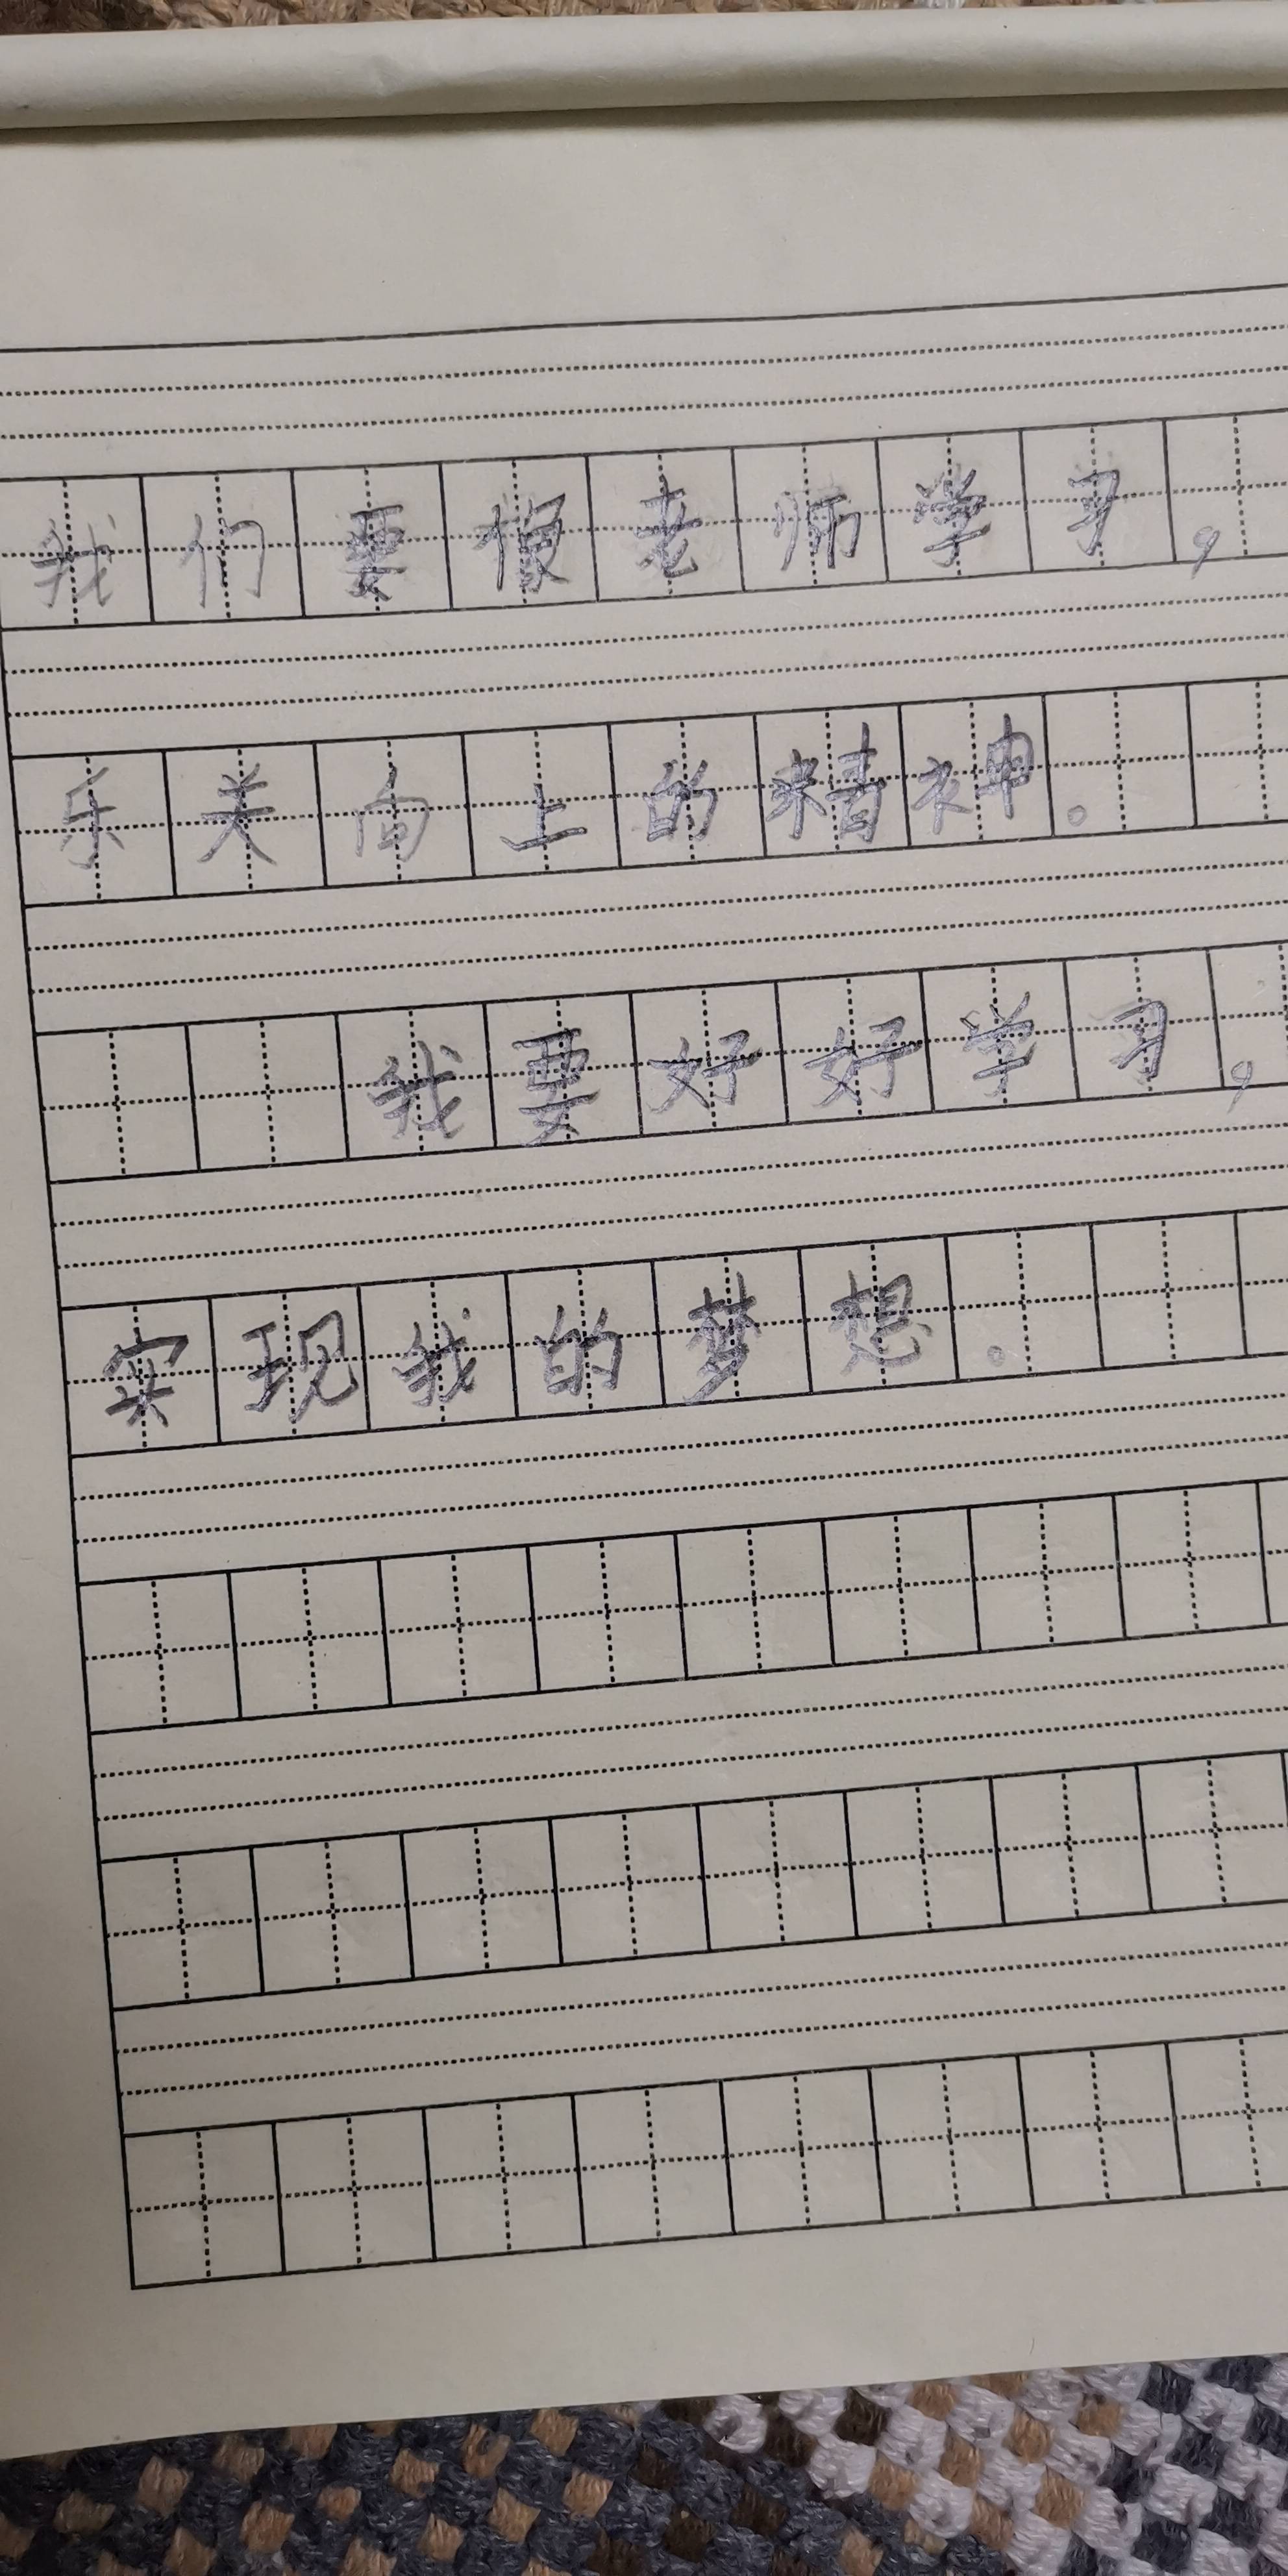 我们要像老师学习，
乐关向上的精神。
我要好好学习，
实现我的梦想。